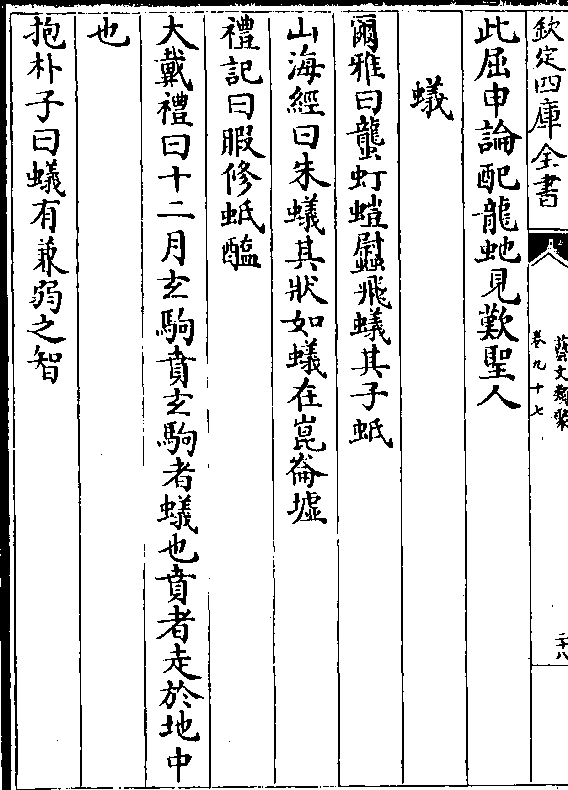 欽定四庫全書
藝文類聚
卷九十七
二十八
此屈申論配龍虵見歎聖人
蟻
爾雅曰蠪虰螘䗽飛蟻其子蚳
山海經曰朱蟻其狀如蟻在崑崙墟
禮記曰暇修蚳醢
大戴禮曰十二月玄駒賁玄駒者蟻也賁者走於地中
也
抱朴子曰蟻有兼弱之智